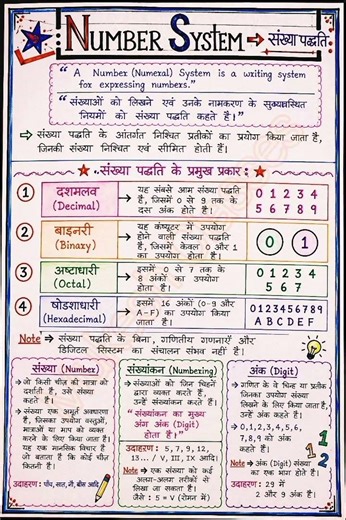 NUMBER SYSTEM → संख्या पद्धति
“ A Number (Numeral) System is a writing system
for expressing numbers.”
“ संख्याओं को लिखने एवं उनके नामकरण के सुव्यवस्थित
नियमों को संख्या पद्धति कहते है।”
→ संख्या पद्धति के अंतर्गत निश्चित प्रतीकों का प्रयोग किया जाता है,
जिनकी संख्या निश्चित एवं सीमित होती हैं।
संख्या पद्धति के प्रमुख प्रकार :
1 दशमलव (Decimal) → यह सबसे आम संख्या पद्धति
है, जिसमें 0 से 9 तक के
दस अंक होते है।
0 1 2 3 4
5 6 7 8 9
2 बाइनरी (Binary) → यह कंप्यूटर में उपयोग
होने वाली संख्या पद्धति
है, जिसमें केवल 0 और 1
का उपयोग होता है।
0 1
3 अष्टाधारी (Octal) → इसमें 0 से 7 तक के
8 अंकों का उपयोग
होता है।
0 1 2 3 4
5 6 7
4 षोडशाधारी (Hexadecimal) → इसमें 16 अंकों (0-9 और
A-F) का उपयोग किया
जाता है।
0123456789
A B C D E F
Note → संख्या पद्धति के बिना, गणितीय गणनाएँ और
डिजिटल सिस्टम का संचालन संभव नहीं है।
संख्या (Number)
→ जो किसी चीज़ की मात्रा को
दर्शाती है, उसे संख्या
कहते है।
→ संख्या एक अमूर्त अवधारणा
है, जिसका उपयोग वस्तुओं,
मात्राओं या माप को व्यक्त
करने के लिए किया जाता है।
यह एक मानसिक विचार है
जो बताता है कि कोई चीज़
कितनी है।
उदाहरण : पाँच, सात, नौ, बीस आदि
संख्यांकन (Numbering)
→ संख्याओं को जिन चिह्नों
द्वारा व्यक्त करते है,
उन्हें संख्यांकन कहते है।
“संख्यांकन का मुख्य
अंग अंक (Digit)
होता है।”
उदाहरण : 5, 7, 9, 12,
13... / V, III, IX आदि।
Note → एक संख्या को कई
अलग-अलग तरीकों से
लिखा जा सकता है।
जैसे : 5 = V (रोमन में)
अंक (Digit)
→ गणित के वे चिन्ह या प्रतीक
जिनका उपयोग संख्या
लिखने के लिए किया जाता है,
उन्हें अंक कहते है।
→ 0,1,2,3,4,5,6,
7,8,9 को अंक
कहते है।
1
2
Note → अंक (Digit) संख्या
का एक भाग होते है।
उदाहरण : 29 में
2 और 9 अंक है।